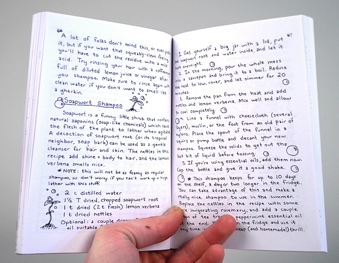 A lot of folks don't mind this, or even
it, but if you want the squeaky-clean feeling
you'll have to cut the residue with a mild
acid. Try rinsing your hair with a
full of diluted lemon juice or vinegar after
you shampoo. Make sure to rinse again in
clean water if you don't want to smell like
a gherkin.
Soapwort Shampoo
A funny little shrub that contains
natural saponins (soap-like chemicals) which cause
the flesh of the plant to lather when agitated.
A decoction of soapwort root (or its tropical
neighbor, soap bark) can be used as a gentle
cleanser for hair and skin. The nettles in this
recipe add shine + body to hair, and the lemon
verbena smells nice.
★ NOTE: this will not be as foamy as regular
shampoo, so don't worry if you can't work up a rich
lather with this stuff.
2 c distilled water
1½ T dried, chopped soapwort root
1 t dried (2 t fresh) lemon verbena
1 t dried nettles
Optional: a couple
oil suitable
1. Get yourself a big jar with a lid, put
soapwort root and water inside, and let it
overnight.
2. In the morning, pour the whole mess
a saucepan and bring it to a boil. Reduce
heat to low, cover, and let simmer for 20
minutes.
3. Remove the pan from the heat and add
nettles and lemon verbena. Mix well and allow
to cool completely.
4. Line a funnel with cheesecloth (several
layers), muslin, or the foot from an old pair of
nylons. Place the spout of the funnel in a
and decant your new
shampoo. Squeeze the solids to get out the
last bit of liquid before tossing.
5. If you're using essential oils, add them now.
Cap the bottle and give it a good shake.
★ This shampoo keeps for up to 10 days
on the shelf, a day or two longer in the fridge.
You can take advantage of this and make a
shampoo to use in the summer.
Replace the nettles in the recipe with some
invigorating rosemary, and add a couple
peppermint essential oil
in the fridge and use it
(homemade) thrill.